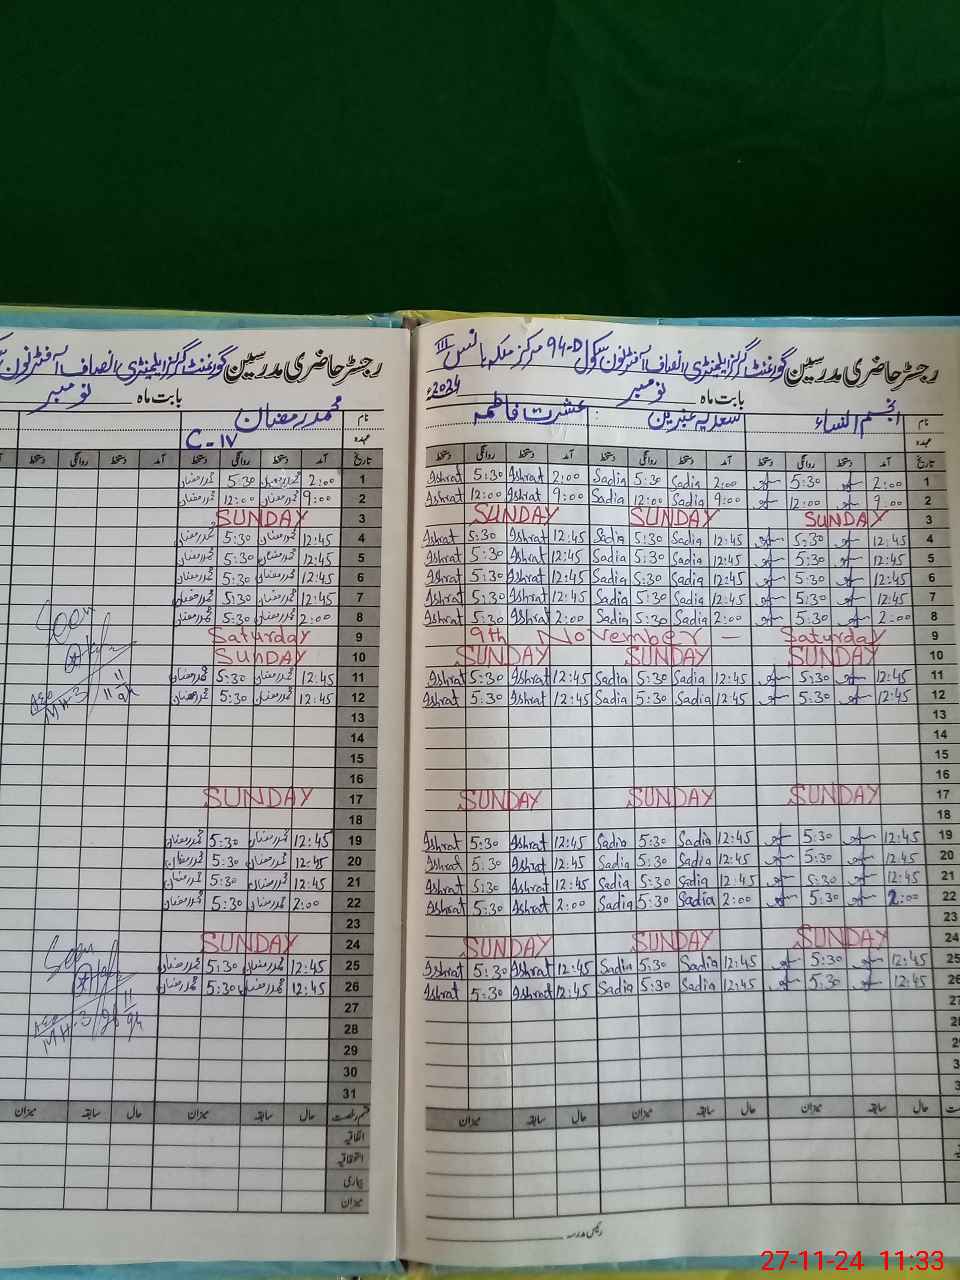 رجسٹر حاضری مدرسین گورنمنٹ گرلز ایلیمنٹری انصاف آفٹرنون سکول 94-D مرکز ملکہ ہانس III
بابت ماہ نومبر 2024ء
نام انجم النساء سعدیہ عنبرین عشرت فاطمہ
عہدہ
تاریخ آمد دستخط روانگی دستخط آمد دستخط روانگی دستخط آمد دستخط روانگی دستخط
1 2:00 5:30 2:00 Sadia 5:30 Sadia 2:00 Ishrat 5:30 Ishrat
2 9:00 12:00 9:00 Sadia 12:00 Sadia 9:00 Ishrat 12:00 Ishrat
3 SUNDAY SUNDAY SUNDAY
4 12:45 5:30 12:45 Sadia 5:30 Sadia 12:45 Ishrat 5:30 Ishrat
5 12:45 5:30 12:45 Sadia 5:30 Sadia 12:45 Ishrat 5:30 Ishrat
6 12:45 5:30 12:45 Sadia 5:30 Sadia 12:45 Ishrat 5:30 Ishrat
7 12:45 5:30 12:45 Sadia 5:30 Sadia 12:45 Ishrat 5:30 Ishrat
8 2:00 5:30 2:00 Sadia 5:30 Sadia 2:00 Ishrat 5:30 Ishrat
9 9th November – Saturday
10 SUNDAY SUNDAY SUNDAY
11 12:45 5:30 12:45 Sadia 5:30 Sadia 12:45 Ishrat 5:30 Ishrat
12 12:45 5:30 12:45 Sadia 5:30 Sadia 12:45 Ishrat 5:30 Ishrat
13
14
15
16
17 SUNDAY SUNDAY SUNDAY
18
19 12:45 5:30 12:45 Sadia 5:30 Sadia 12:45 Ishrat 5:30 Ishrat
20 12:45 5:30 12:45 Sadia 5:30 Sadia 12:45 Ishrat 5:30 Ishrat
21 12:45 5:30 12:45 Sadia 5:30 Sadia 12:45 Ishrat 5:30 Ishrat
22 2:00 5:30 2:00 Sadia 5:30 Sadia 2:00 Ishrat 5:30 Ishrat
23
24 SUNDAY SUNDAY SUNDAY
25 12:45 5:30 12:45 Sadia 5:30 Sadia 12:45 Ishrat 5:30 Ishrat
26 12:45 5:30 12:45 Sadia 5:30 Sadia 12:45 Ishrat 5:30 Ishrat
27
28
29
حال سابقہ میزان حال سابقہ میزان حال سابقہ میزان
رئیس مدرسہ
رجسٹر حاضری مدرسین گورنمنٹ گرلز ایلیمنٹری انصاف آفٹرنون
بابت ماہ نومبر
نام محمد رمضان
عہدہ C-IV
تاریخ آمد دستخط روانگی دستخط آمد دستخط روانگی دستخط
1 2:00 محمد رمضان 5:30 محمد رمضان
2 9:00 محمد رمضان 12:00 محمد رمضان
3 SUNDAY
4 12:45 محمد رمضان 5:30 محمد رمضان
5 12:45 محمد رمضان 5:30 محمد رمضان
6 12:45 محمد رمضان 5:30 محمد رمضان
7 12:45 محمد رمضان 5:30 محمد رمضان
8 2:00 محمد رمضان 5:30 محمد رمضان
9 Saturday
10 SUNDAY
11 12:45 محمد رمضان 5:30 محمد رمضان
12 12:45 محمد رمضان 5:30 محمد رمضان
13
14
15
16
17 SUNDAY
18
19 12:45 محمد رمضان 5:30 محمد رمضان
20 12:45 محمد رمضان 5:30 محمد رمضان
21 12:45 محمد رمضان 5:30 محمد رمضان
22 2:00 محمد رمضان 5:30 محمد رمضان
23
24 SUNDAY
25 12:45 محمد رمضان 5:30 محمد رمضان
26 12:45 محمد رمضان 5:30 محمد رمضان
27
28
29
30
31
قسم رخصت حال سابقہ میزان حال سابقہ میزان
اتفاقیہ
استحقاقیہ
بیماری
میزان
Seen
AEO
MH-3
Seen
AEO
MH-3
27-11-24 11:33